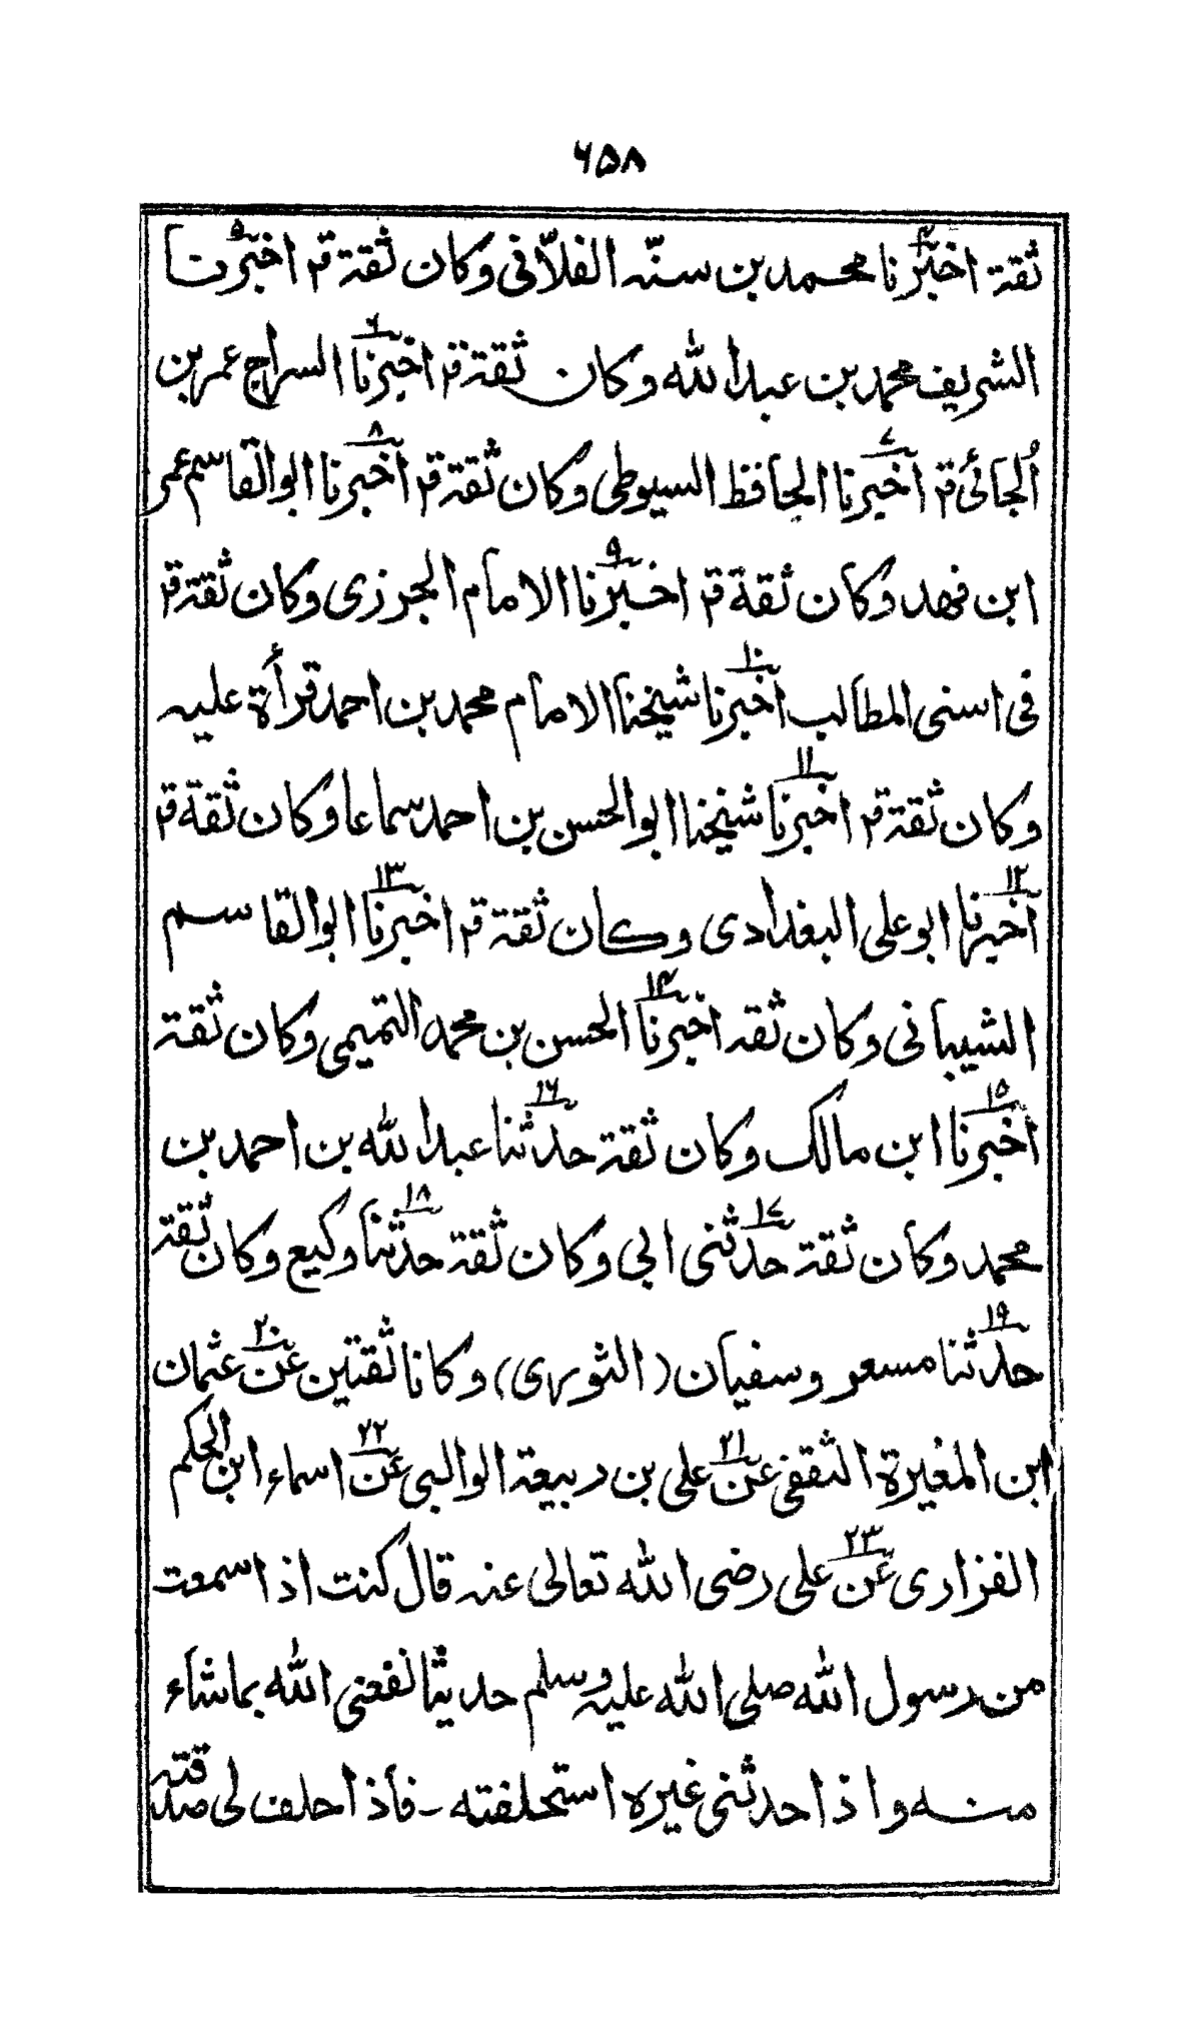 ۶۵۸
ثقة اخبرنا محمد بن سنّہ الفلانی وکان ثقة قر اخبرنا
الشریف محمد بن عبداللہ وکان ثقة قر اخبرنا السراج عمر بن
الجائی قر اخبرنا الحافظ السیوطی وکان ثقة قر اخبرنا ابوالقاسم عمر
ابن فهد وکان ثقة قر اخبرنا الامام الجرزی وکان ثقة قر
فی اسنی المطالب اخبرنا شیخنا الامام محمد بن احمد قرأة علیہ
وکان ثقة قر اخبرنا شیخنا ابوالحسن بن احمد سماعا وکان ثقة قر
اخبرنا ابو علی البغدادی وکان ثقة قر اخبرنا ابوالقاسم
الشیبانی وکان ثقہ اخبرنا الحسن بن محمد التمیمی وکان ثقة
اخبرنا ابن مالک وکان ثقة حدثنا عبداللہ بن احمد بن
محمد وکان ثقة حدثنی ابی وکان ثقة حدثنا وکیع وکان ثقة
حدثنا مسعر وسفیان (الثوری) وکانا ثقتین عن عثمان
ابن المغیرة الثقفی عن علی بن ربیعة الوالبی عن اسماء ابن الحکم
الفزاری عن علی رضی اللہ تعالی عنہ قال کنت اذا سمعت
من رسول اللہ صلی اللہ علیہ وسلم حدیثا نفعنی اللہ بماشاء
منہ واذا حدثنی غیرہ استحلفتہ - فاذا حلف لی صدقتہ